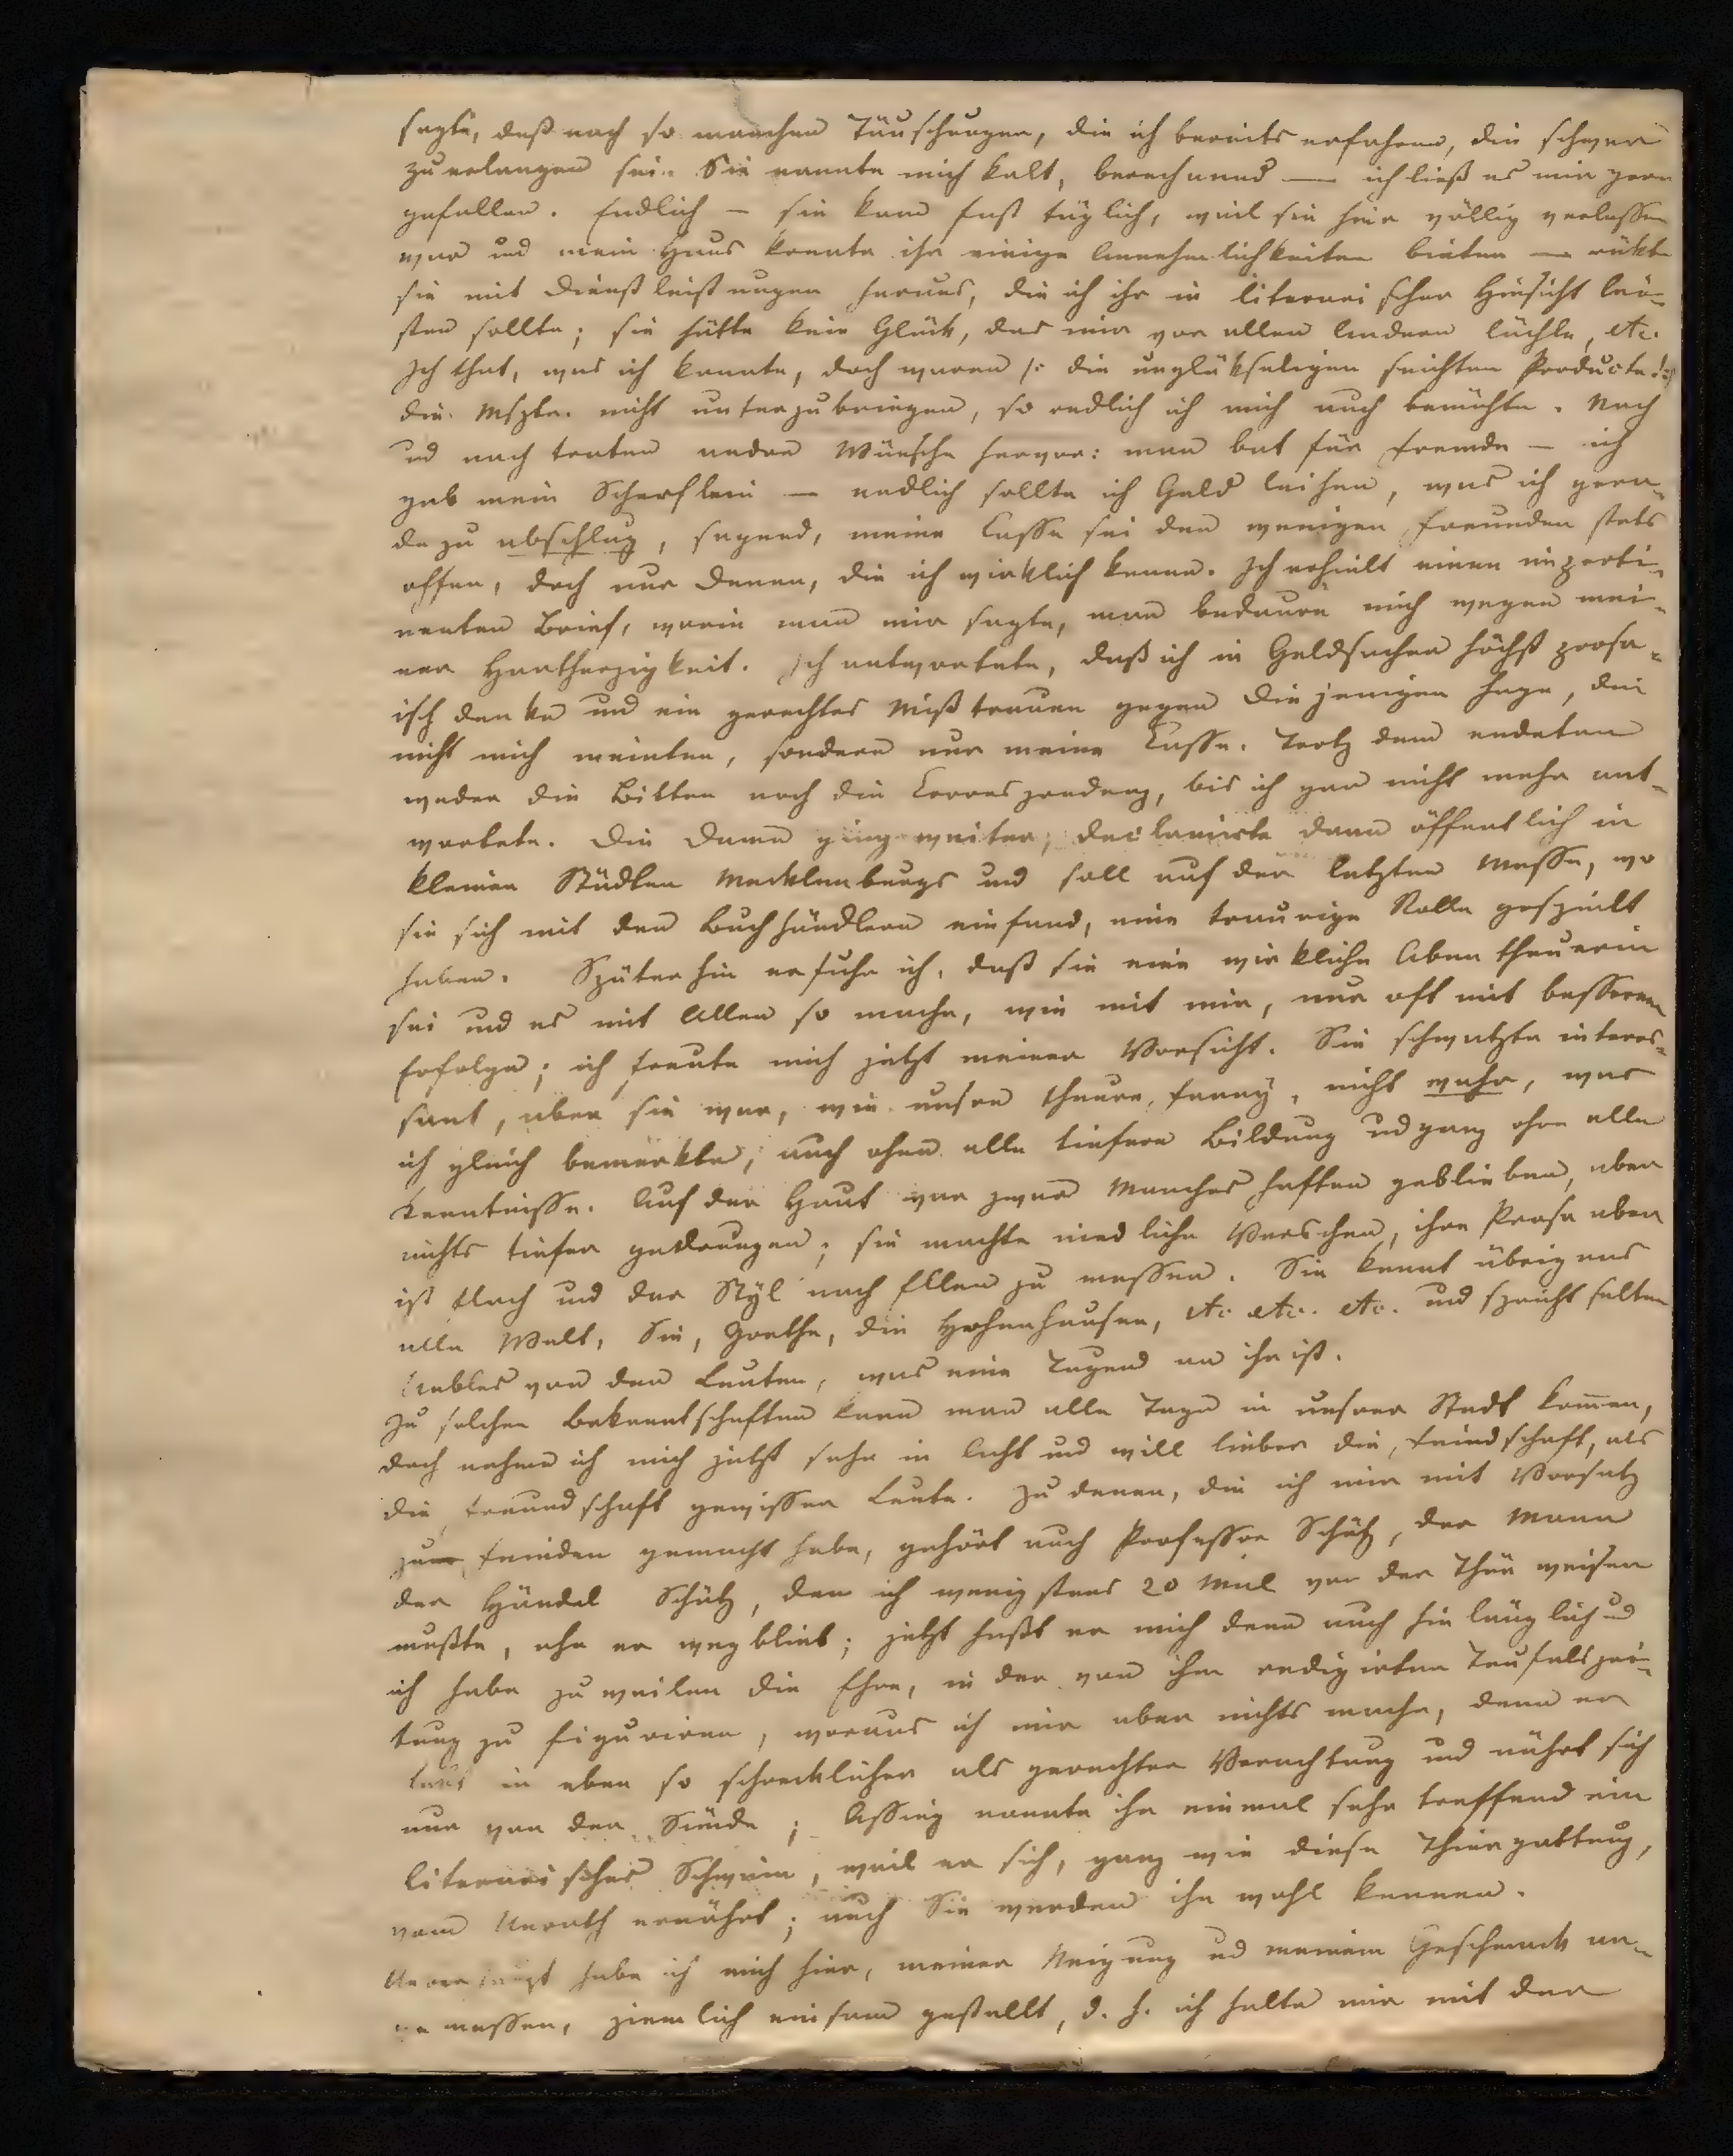 sagte, daß nach so manchen Täuschungen, die ich bereits erfahren, die schwer
zu erlangen sei. Sie nannte mich kalt, berechnend — ich ließ es mir gern
gefallen. Endlich — sie kam fast täglich, weil sie hier völlig verlassen
war und mein Haus konnte ihr einige Annehmlichkeiten bieten — rükte
sie mit Dienstleistungen heraus, die ich ihr in literarischer Hinsicht lei-
sten sollte; sie hätte kein Glück, das mir vor allen Andern lächle, etc.
Ich that, was ich konnte, doch waren /: die unglükseligen seichten Producte :/
die Mszte. nicht unterzubringen, so redlich ich mich auch bemühte. Nach
und nach traten andre Wünsche hervor: man bat für Fremde — ich
gab mein Scherflein — endlich sollte ich Geld leihen, was ich gera-
de zu abschlug, sagend, meine Casse sei den wenigen Freunden stets
offen, doch nur denen, die ich wirklich kenne. Ich erhielt einen imperti-
nenten Brief, worin man mir sagte, man bedaure mich wegen mei-
ner Hartherzigkeit. Ich antwortete, daß ich in Geldsachen höchst prosa-
isch denke und ein gerechtes Mißtrauen gegen diejenigen hege, die
nicht mich meinten, sondern nur meine Casse. Trotz dem endeten
weder die Bitten noch die Correspondenz, bis ich gar nicht mehr ant-
wortete. Die Dame ging weiter, declamirte dann öffentlich in
kleinen Städten Mecklenburgs und soll auf der letzten Messe, wo
sie sich mit den Buchhändlern einfand, eine traurige Rolle gespielt
haben. Späterhin erfuhr ich, daß sie eine wirkliche Abentheuerin
sei und es mit Allen so mache, wie mit mir, nur oft mit besserem
Erfolge; ich freute mich jetzt meiner Vorsicht. Sie schwatzte interes-
sant, aber sie war, wie unsre theure Fanny, nicht wahr, was
ich gleich bemerkte, auch ohne alle tiefere Bildung und ganz ohne alle
Kenntnisse. Auf der Haut war zwar Manches haften geblieben, aber
nichts tiefer gedrungen; sie machte niedliche Verschen, ihre Prosa aber
ist flach und der Styl nach Ellen zu messen. Sie kennt übrigens
alle Welt, Sie, Goethe, die Hohenhausen, etc etc. etc. und spricht selten
Uebles von den Leuten, was eine Tugend an ihr ist.
Zu solchen Bekanntschaften kann man alle Tage in unsrer Stadt kom̅en,
doch nehme ich mich jetzt sehr in Acht und will lieber die Feindschaft, als
die Freundschaft gewisser Leute. Zu denen, die ich mir mit Vorsatz
zum Feinden gemacht habe, gehört auch Professor Schütz, der Mann
der Händel Schütz, den ich wenigstens 20 Mal vor der Thür weisen
mußte, ehe er wegblieb; jetzt haßt er mich denn auch hinlänglich und
ich habe zuweilen die Ehre, in der von ihm redigirten Teufelszei-
tung zu figuriren, woraus ich mir aber nichts mache, denn er
lebt in eben so schrecklicher als gerechter Verachtung und nährt sich
nur von der Sünde; Assing nannte ihn einmal sehr treffend ein
literarisches Schwein, weil er sich, ganz wie diese Thiergattung,
vom Unrath ernährt; auch Sie werden ihn wohl kennen.
Ueberhaupt habe ich mich hier, meiner Neigung und meinem Geschmack an-
gemessen, ziemlich einsam gestellt, d. h. ich halte mir mit der